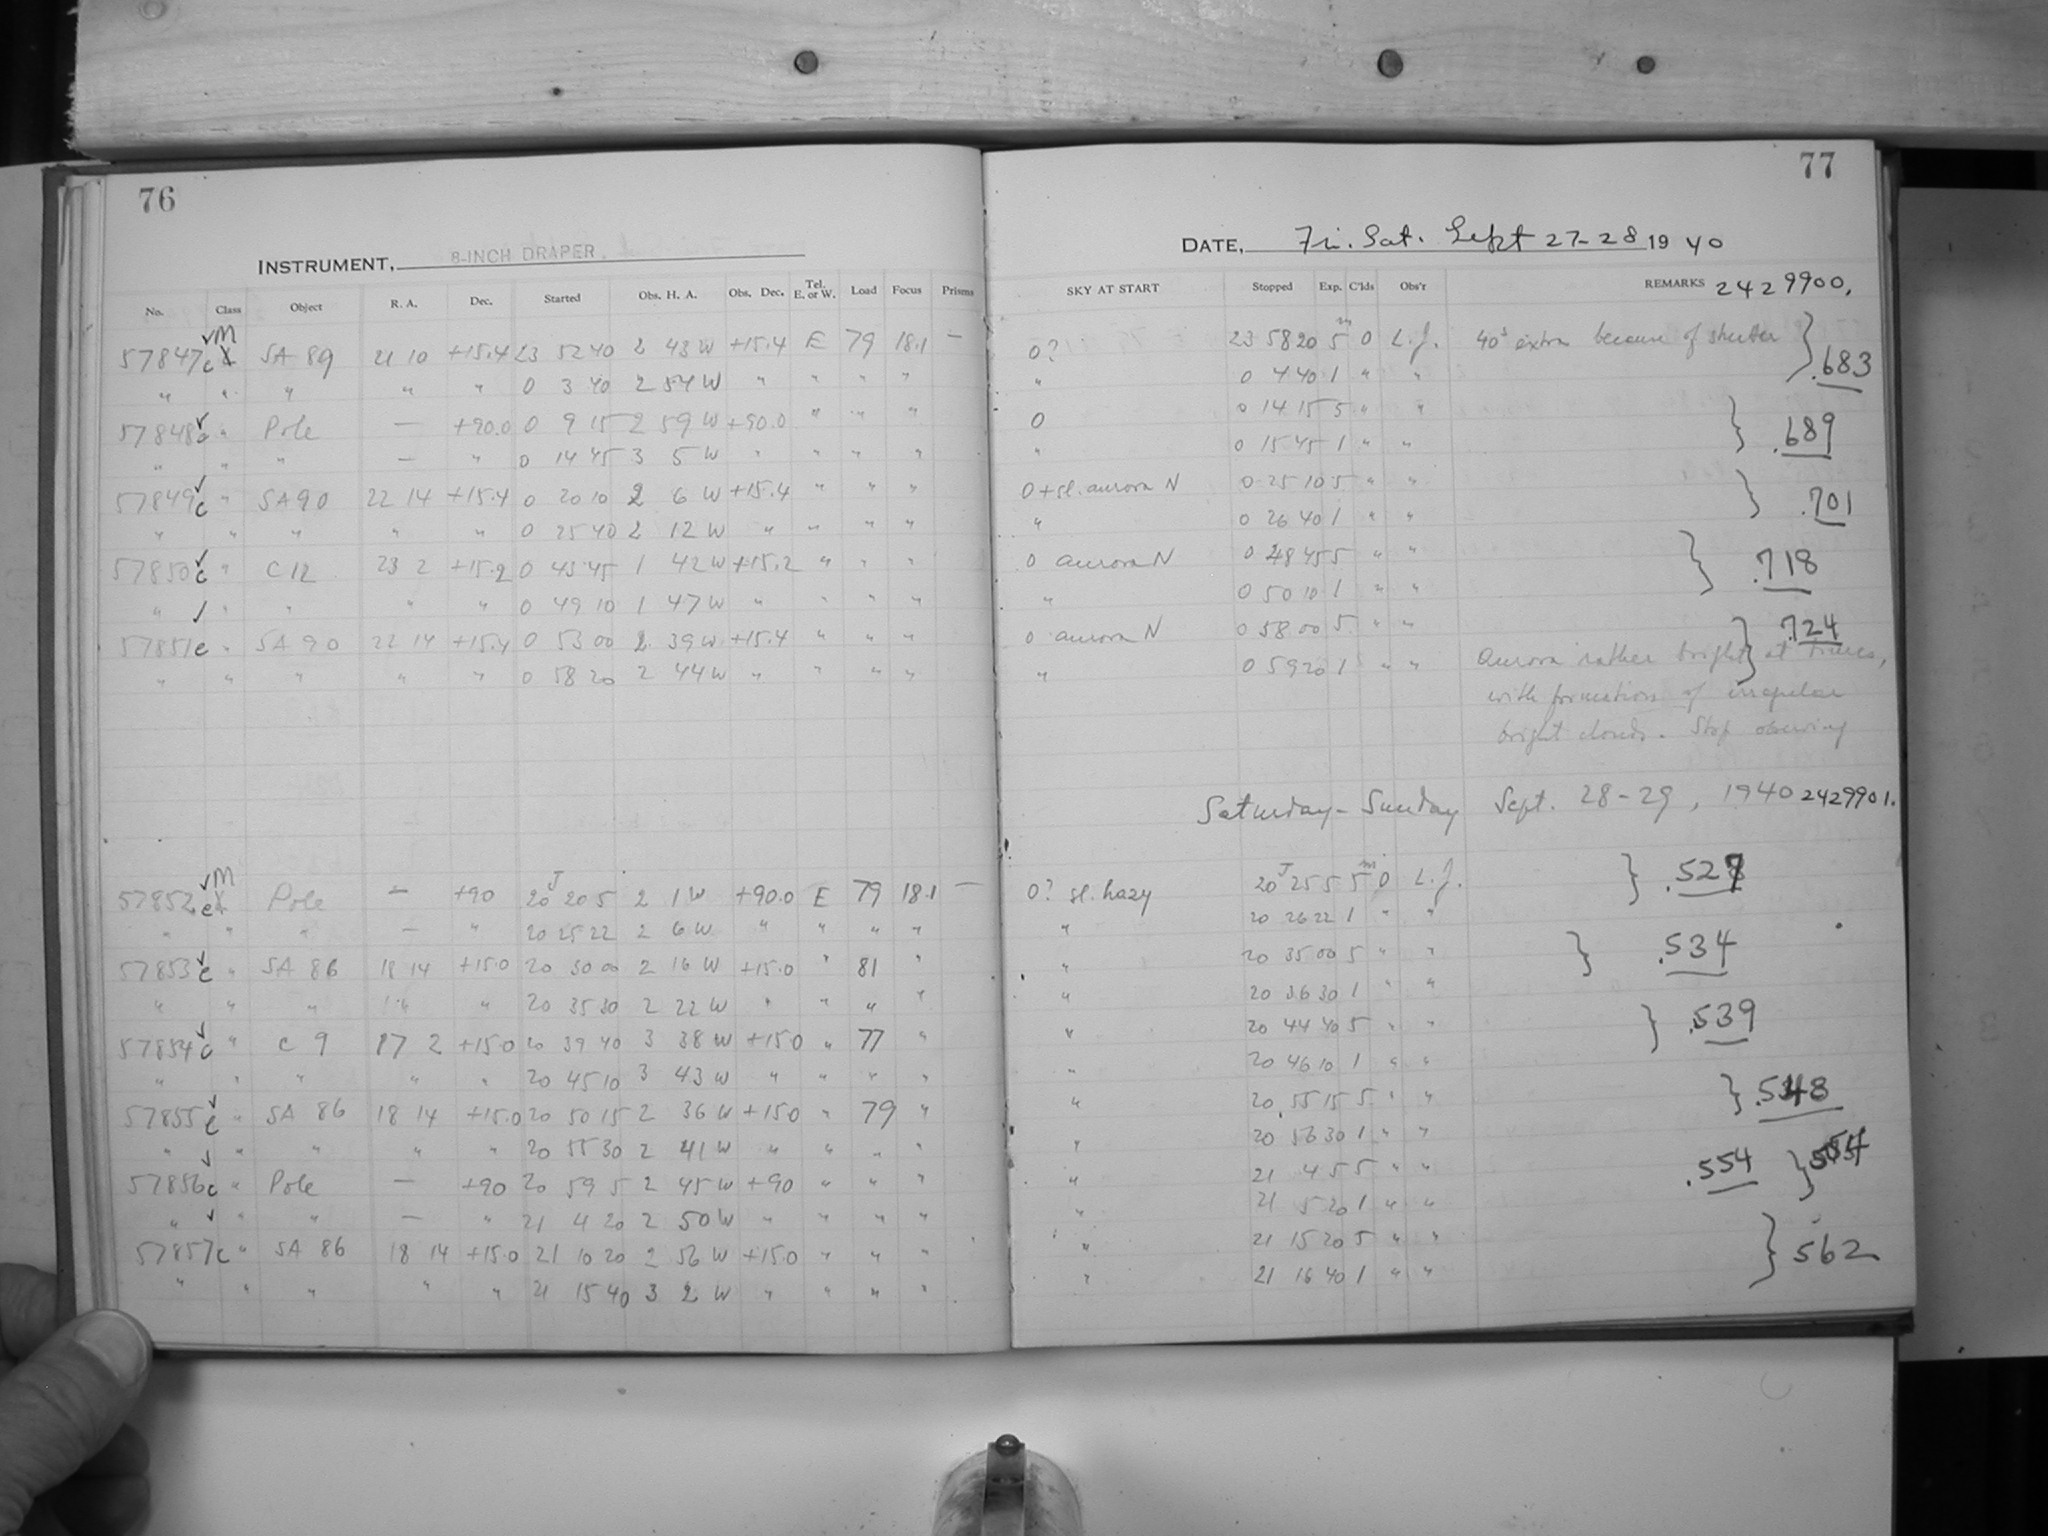 76
INSTRUMENT, 8-INCH DRAPER
No. Class Object R. A. Dec. Started Obs. H. A. Obs. Dec. Tel. E. or W. Load Focus Prisms
M
57847 c SA 89 21 10 +15.4 23 52 40 2 43 W +15.4 E 79 18.1 —
" " " " " 0 3 40 2 54 W " " " "
57848 c " Pole — +90.0 0 9 15 2 59 W +90.0 " " "
" " " — " 0 14 45 3 5 W " " " "
57849 c " SA 90 22 14 +15.4 0 20 10 2 6 W +15.4 " " "
" " " " " 0 25 40 2 12 W " " " "
57850 c " C 12 23 2 +15.2 0 43 45 1 42 W +15.2 " " "
" " " " " 0 49 10 1 47 W " " " "
57851 c " SA 90 22 14 +15.4 0 53 00 2 39 W +15.4 " " "
" " " " " 0 58 20 2 44 W " " " "
M
57852 c Pole — +90 20 20 5 2 1 W +90.0 E 79 18.1 —
" " " — " 20 25 22 2 6 W " " " "
57853 c " SA 86 18 14 +15.0 20 30 00 2 16 W +15.0 " 81 "
" " " " " 20 35 30 2 22 W " " " "
57854 c " C 9 17 2 +15.0 20 39 40 3 38 W +15.0 " 77 "
" " " " " 20 45 10 3 43 W " " " "
57855 c " SA 86 18 14 +15.0 20 50 15 2 36 W +15.0 " 79 "
" " " " " 20 55 30 2 41 W " " " "
57856 c " Pole — +90 20 59 5 2 45 W +90 " " "
" " " — " 21 4 20 2 50 W " " " "
57857 c " SA 86 18 14 +15.0 21 10 20 2 56 W +15.0 " " "
" " " " " 21 15 40 3 2 W " " " "
77
DATE, Fri. Sat. Sept 27-28 1940
SKY AT START Stopped Exp. C'lds Obs'r REMARKS 2429900.
0? 23 58 20 5 m 0 L.J. 40s extra because of shutter
" 0 4 40 1 " " .683
0 0 14 15 5 " "
" 0 15 45 1 " " .689
0 + sl. aurora N 0 25 10 5 " "
" 0 26 40 1 " " .701
0 aurora N 0 48 45 5 " " .718
" 0 50 10 1 " "
0 aurora N 0 58 00 5 " " .724
" 0 59 20 1 " " Aurora rather bright at times,
with formations of irregular
bright clouds. Stop observing
Saturday - Sunday Sept. 28-29, 1940 2429901.
0? sl. hazy 20 25 5 5 m 0 L.J. .527
" 20 26 22 1 " "
" 20 35 00 5 " " .534
" 20 36 30 1 " "
" 20 44 40 5 " " .539
" 20 46 10 1 " "
" 20 55 15 5 " " .548
" 20 56 30 1 " "
" 21 4 5 5 " " .554
" 21 5 20 1 " "
" 21 15 20 5 " " 562
" 21 16 40 1 " "